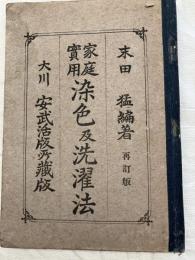 末田 猛編著 再訂版
家庭
實用 染色及洗濯法
大川 安武活版所藏版